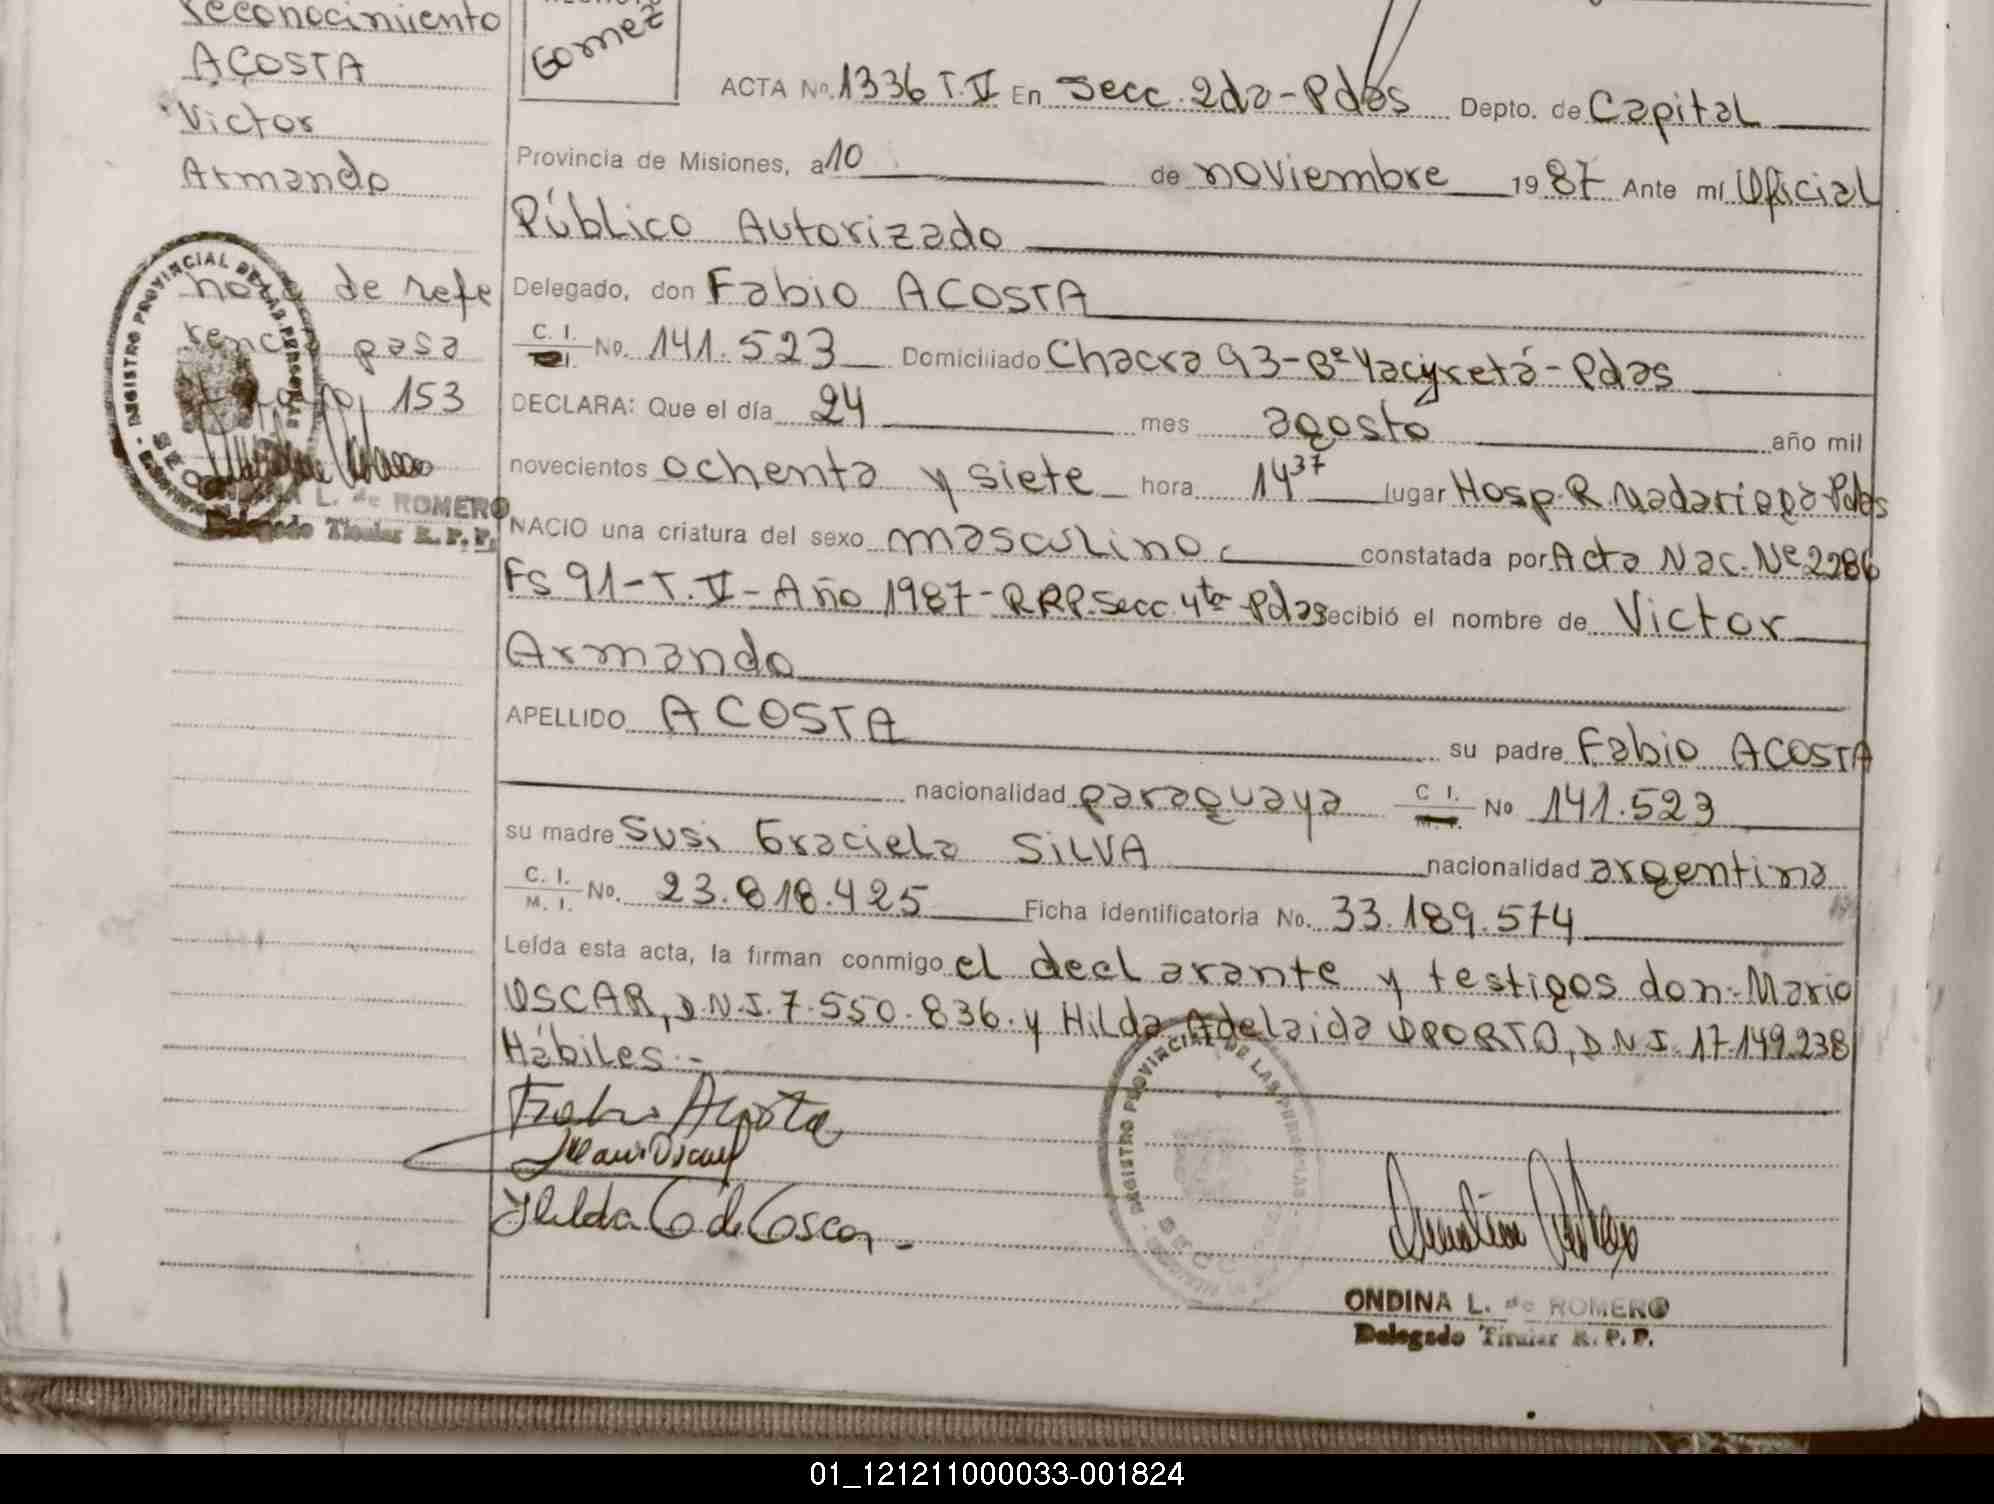 reconocimiento
ACOSTA
Victor
Armando
nota de refe
rencia pasa
153
L. de ROMERO
Delegado Titular R. P. P.
REGISTRO PROVINCIAL DE LAS PERSONAS
Gomez
ACTA No. 1336 T. V En Secc. 2da - Pdas Depto. de Capital
Provincia de Misiones, a 10 de noviembre 1987 Ante mí Oficial
Público Autorizado
Delegado, don Fabio ACOSTA
C. I. No. 141.523 Domiciliado Chacra 93 - Bº Yacyretá - Pdas
DECLARA: Que el día 24 mes agosto año mil
novecientos ochenta y siete hora 14 37 lugar Hosp. R. Madariaga Pdas
NACIO una criatura del sexo masculino constatada por Acta Nac. Nº 2286
Fs 91 - T. V - Año 1987 - R.R.P. Secc. 4ta - Pdas recibió el nombre de Victor
Armando
APELLIDO ACOSTA su padre Fabio ACOSTA
nacionalidad paraguaya C I. No 141.523
su madre Susi Graciela SILVA nacionalidad argentina
C. I. M. I. No. 23.818.425 Ficha identificatoria No. 33.189.574
Leída esta acta, la firman conmigo el declarante y testigos don - Mario
OSCAR, D.N.I. 7.550.836. y Hilda Adelaida OPORTO, D.N.I. 17.149.238
Hábiles.-
Fabio Acosta
Mario Oscar
Hilda O de Oscar.-
REGISTRO PROVINCIAL DE LAS PERSONAS
ONDINA L. de ROMERO
Delegado Titular R. P. P.
01_121211000033-001824